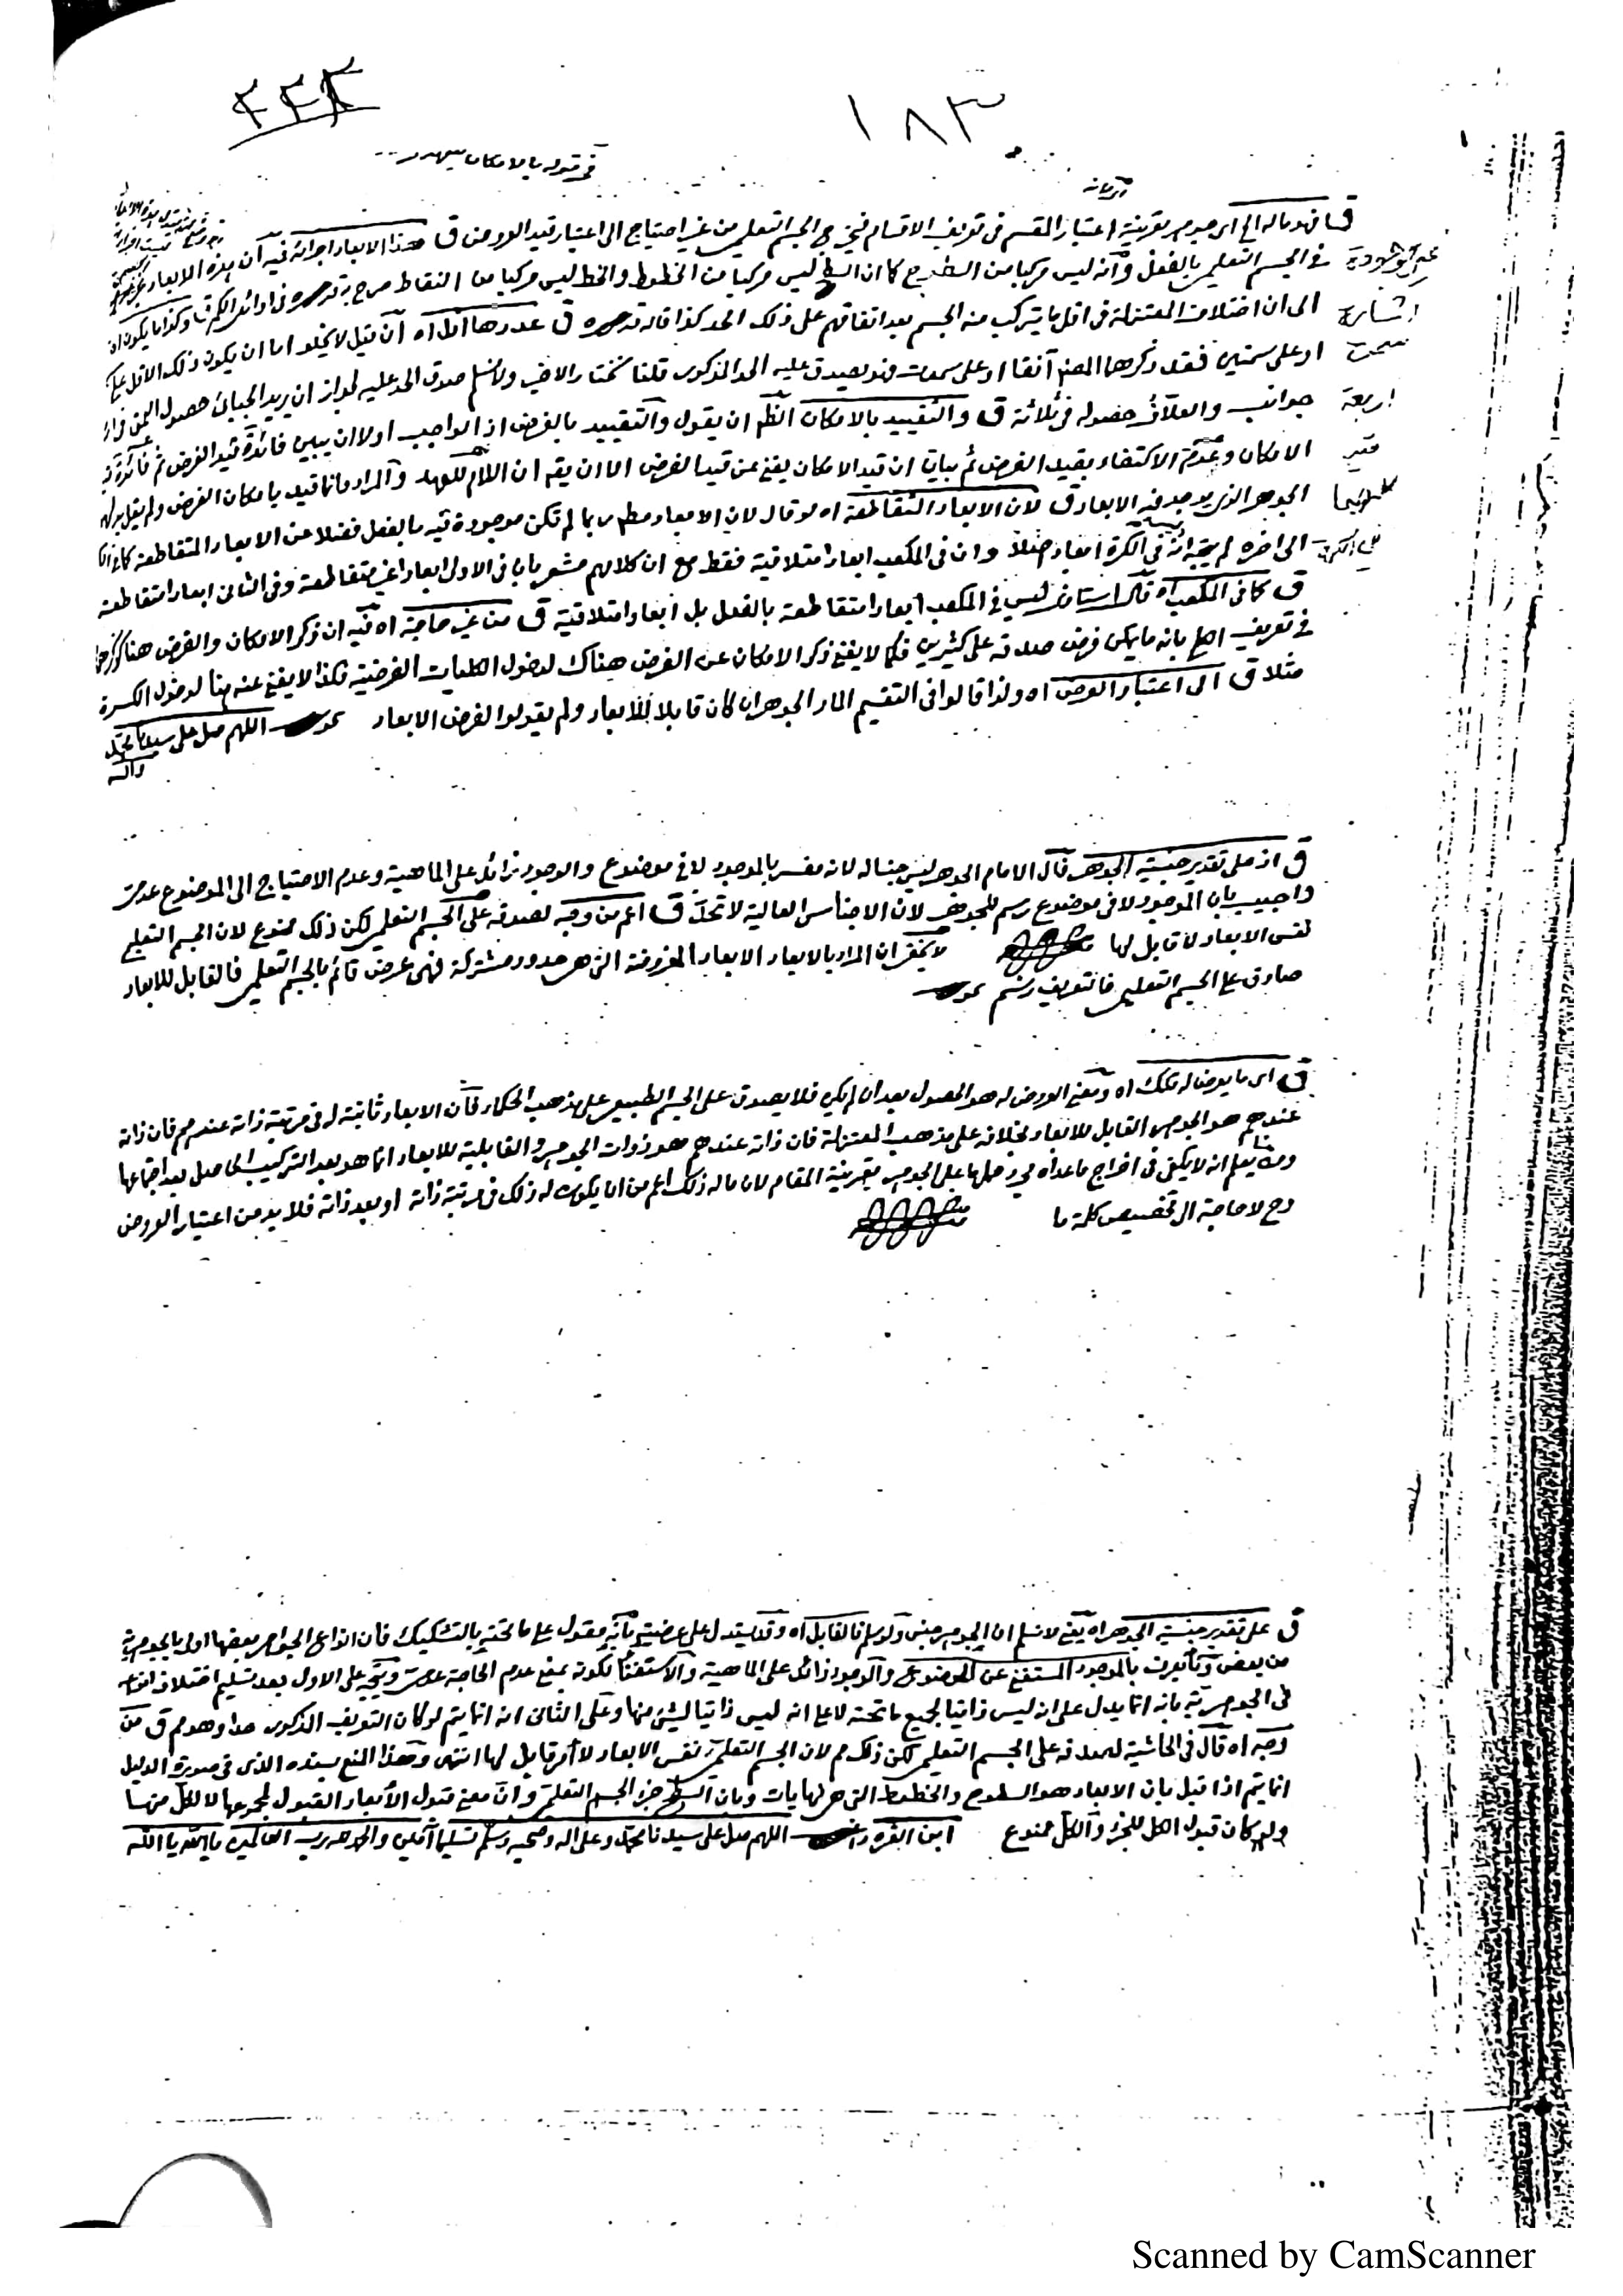 ١٨٣
٤٢٣
في قوله بالامكان
ق فهو ماله الخ اى جوهر بقرينة اعتبار المقسم فى تعريف الاقسام فيخرج الجسم التعليمى من غير احتياج الى اعتبار قيد العروض ق هذا الابعاد اجزائه فيه أن هذه الابعاد
فى الجسم التعليمى بالفعل وأنه ليس مركبا من السطوح كما ان السطح ليس مركبا من الخطوط والخط ليس مركبا من النقاط صرح به قدس سره فى اوائل
الى ان اختلاف المعتزلة فى اقل ما يتركب منه الجسم بعد اتفاقهم على ذلك الحد كذا قاله قدس سره ق عددها اقل اه أن قيل لا يخلو اما ان يكون ذلك الاقل على
او على سمتين فقد ذكرهما المصنف آنفا او على سموت فهو يصدق عليه الحد المذكور قلنا نختار الاخير ولا نسلم صدق الحد عليه لجواز ان يريد الجبائى حصول
جوانب والعلاف حصوله فى ثلاثة ق والتقييد بالامكان الظ ان يقول والتقييد بالفرض اذ الواجب اولا ان يبين فائدة قيد الفرض ثم فائدة
الامكان وعدم الاكتفاء بقيد الفرض ثم بيان ان قيد الامكان يغنى عن قيد الفرض الا ان يقه ان اللام للعهد والمراد مانا قيد بامكان الفرض ولم يقل
الجوهر الذى يوجد فيه الابعاد ق لان الابعاد المتقاطعة اه لو قال لان الابعاد مطم ربما لم تكن موجودة فيه بالفعل فضلا عن الابعاد المتقاطعة كما فى
الى اخره لم يتجه انه فى الكرة ابعاد مثلا وان فى المكعب ابعادا متلاقية فقط مع ان كلامهم مشعر بان فى الاول ابعادا غير متقاطعة وفى الثانى ابعادا متقاطعة
ق كما فى المكعب اه قال استاذى ليس فى المكعب ابعادا متقاطعة بالفعل بل ابعادا متلاقية ق من غير حاجة اه فيه ان ذكر الامكان والفرض هنا
فى تعريف الكلى بانه ما يمكن فرض صدقه على كثيرين فكما لا يغنى ذكر الامكان عن الفرض هناك لدخول الكليات الفرضية فكذا لا يغنى عنه هنا لدخول الكرة
مثلا ق الى اعتبار العروض اه ولذا قالوا فى التقسيم المار الجوهر ان كان قابلا للابعاد ولم يقولوا لفرض الابعاد اللهم صل على سيدنا محمد
وآله
اشارة
سمت
اربعة
قيد
ق اذ على تقدير جنسية الجوهر قال الامام الجوهر ليس جنسا له لانه مفسر بالموجود لا فى موضوع والوجود زائد على الماهية وعدم الاحتياج الى الموضوع عدمى
واجيب بان الموجود لا فى موضوع رسم للجوهر لان الاجناس العالية لا تحد ق اعم من وجه لصدقه على الجسم التعليمى لكن ذلك ممنوع لان الجسم التعليمى
نفس الابعاد لا قابل لها لا يخفى ان المراد بالابعاد الابعاد المفروضة التى هى حدود مشتركة فهى عرض قائم بالجسم التعليمى فالقابل للابعاد
صادق على الجسم التعليمى فالتعريف رسم
ق اى ما يعرض له تلك اه ومعنى العروض له هو الحصول بعد ان لم يكن فلا يصدق على الجسم الطبيعى على مذهب الحكماء فان الابعاد ثابتة له فى مرتبة ذاته عندهم فان ذاته
عندهم هو الجوهر القابل للابعاد بخلافه على مذهب المعتزلة فان ذاته عندهم هو ذوات الجواهر والقابلية للابعاد انما هو بعد التركيب الحاصل بعد اجتماعها
ومنه يعلم انه لا يكفى فى اخراج ما عداه مجرد حملها على الجوهر بقرينة المقام لان ماله ذلك اعم من ان يكون له ذلك فى مرتبة ذاته او بعد ذاته فلا بد من اعتبار العروض
وح لا حاجة الى تخصيص كلمة ما
ق على تقدير جنسية الجوهر اه يعنى لا نسلم ان الجوهر جنس ولو سلم فالقابل اه وقد يستدل على عرضيته بأنه مقول على ما تحته بالتشكيك فان انواع الجواهر بعضها اولى بالجوهرية
من بعض وبأنه يعرف بالموجود المستغنى عن الموضوع والوجود زائد على الماهية والاستغناء لكونه بمعنى عدم الحاجة عدمى ويتجه على الاول بعد تسليم اختلاف
فى الجوهرية بانه انما يدل على انه ليس ذاتيا لجميع ما تحته لا على انه ليس ذاتيا لشئ منها وعلى الثانى انه انما يتم لو كان التعريف المذكور حدا وهو مم ق من
وجه اه قال فى الحاشية لصدقه على الجسم التعليمى لكن ذلك مم لان الجسم التعليمى نفس الابعاد لا أمر قابل لها انتهى وهذا المنع بسنده الذى فى صورة الدليل
انما يتم اذا قيل بان الابعاد هو السطوح والخطوط التى هى نهايات وبان السطح جزء الجسم التعليمى وان معنى قبول الأبعاد القبول لمجموعها لا لكل منها
ولو كان قبول الكل للجزء والكل ممنوع ابن القره داغى اللهم صل على سيدنا محمد وعلى اله وصحبه وسلم تسليما آمين والحمد لله رب العالمين يا الله يا الله
Scanned by CamScanner